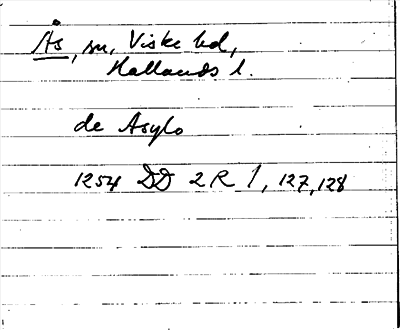 Ås, sn, Viske hd,
Hallands l.
de Asylo
1254 DD 2 R 1, 127, 128